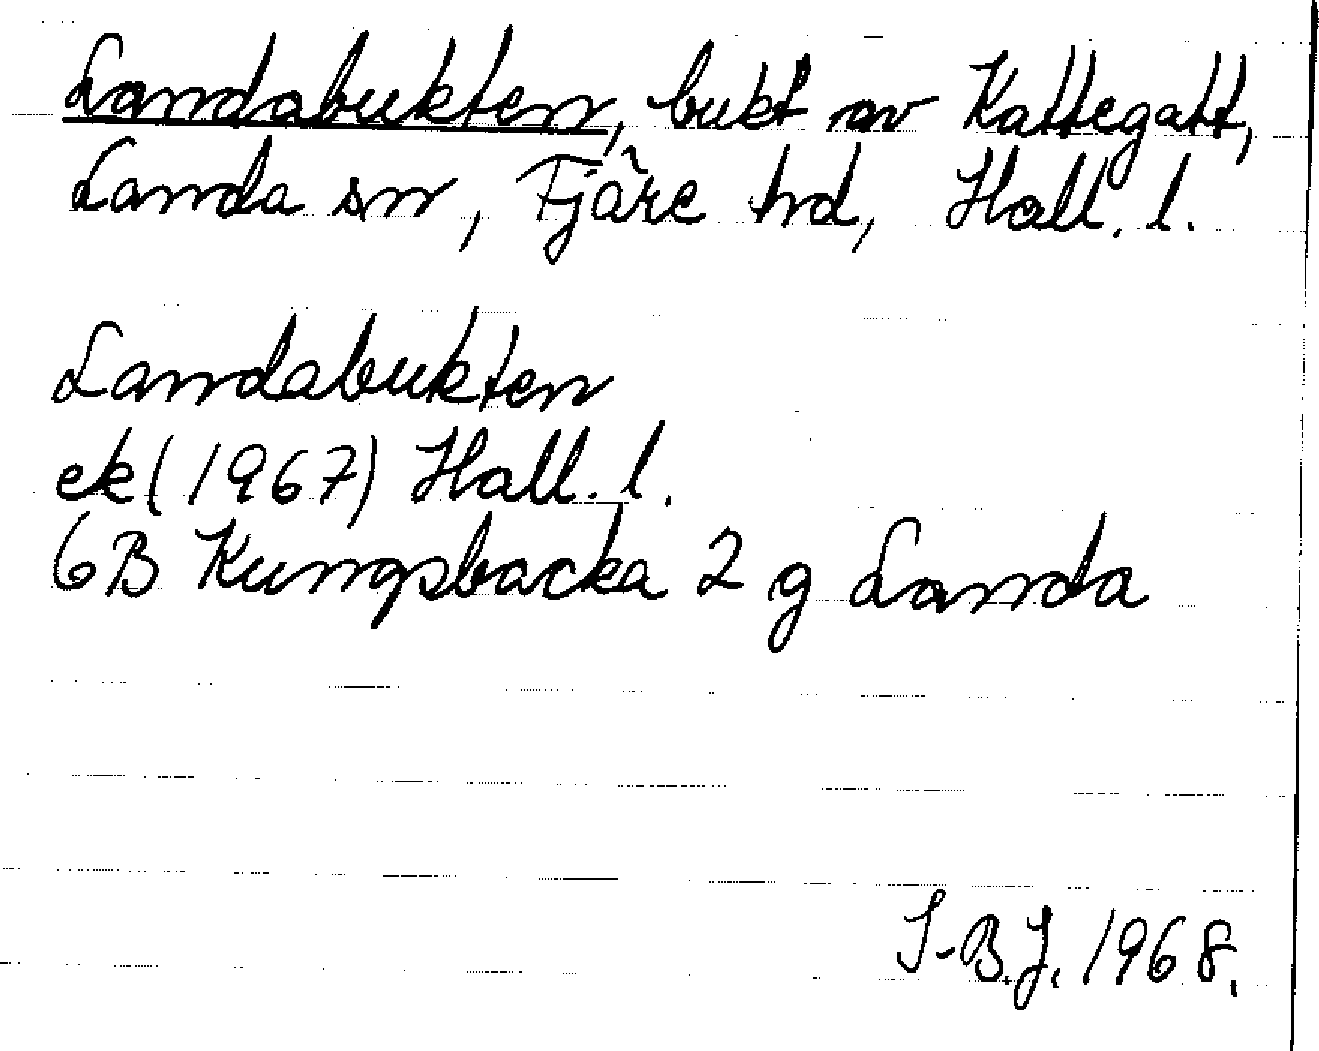 Landabukten, bukt av Kattegatt,
Landa sn, Fjäre hd, Hall. l.
Landabukten
ek (1967) Hall. l.
6B Kungsbacka 2 g Landa
I-B.J. 1968.